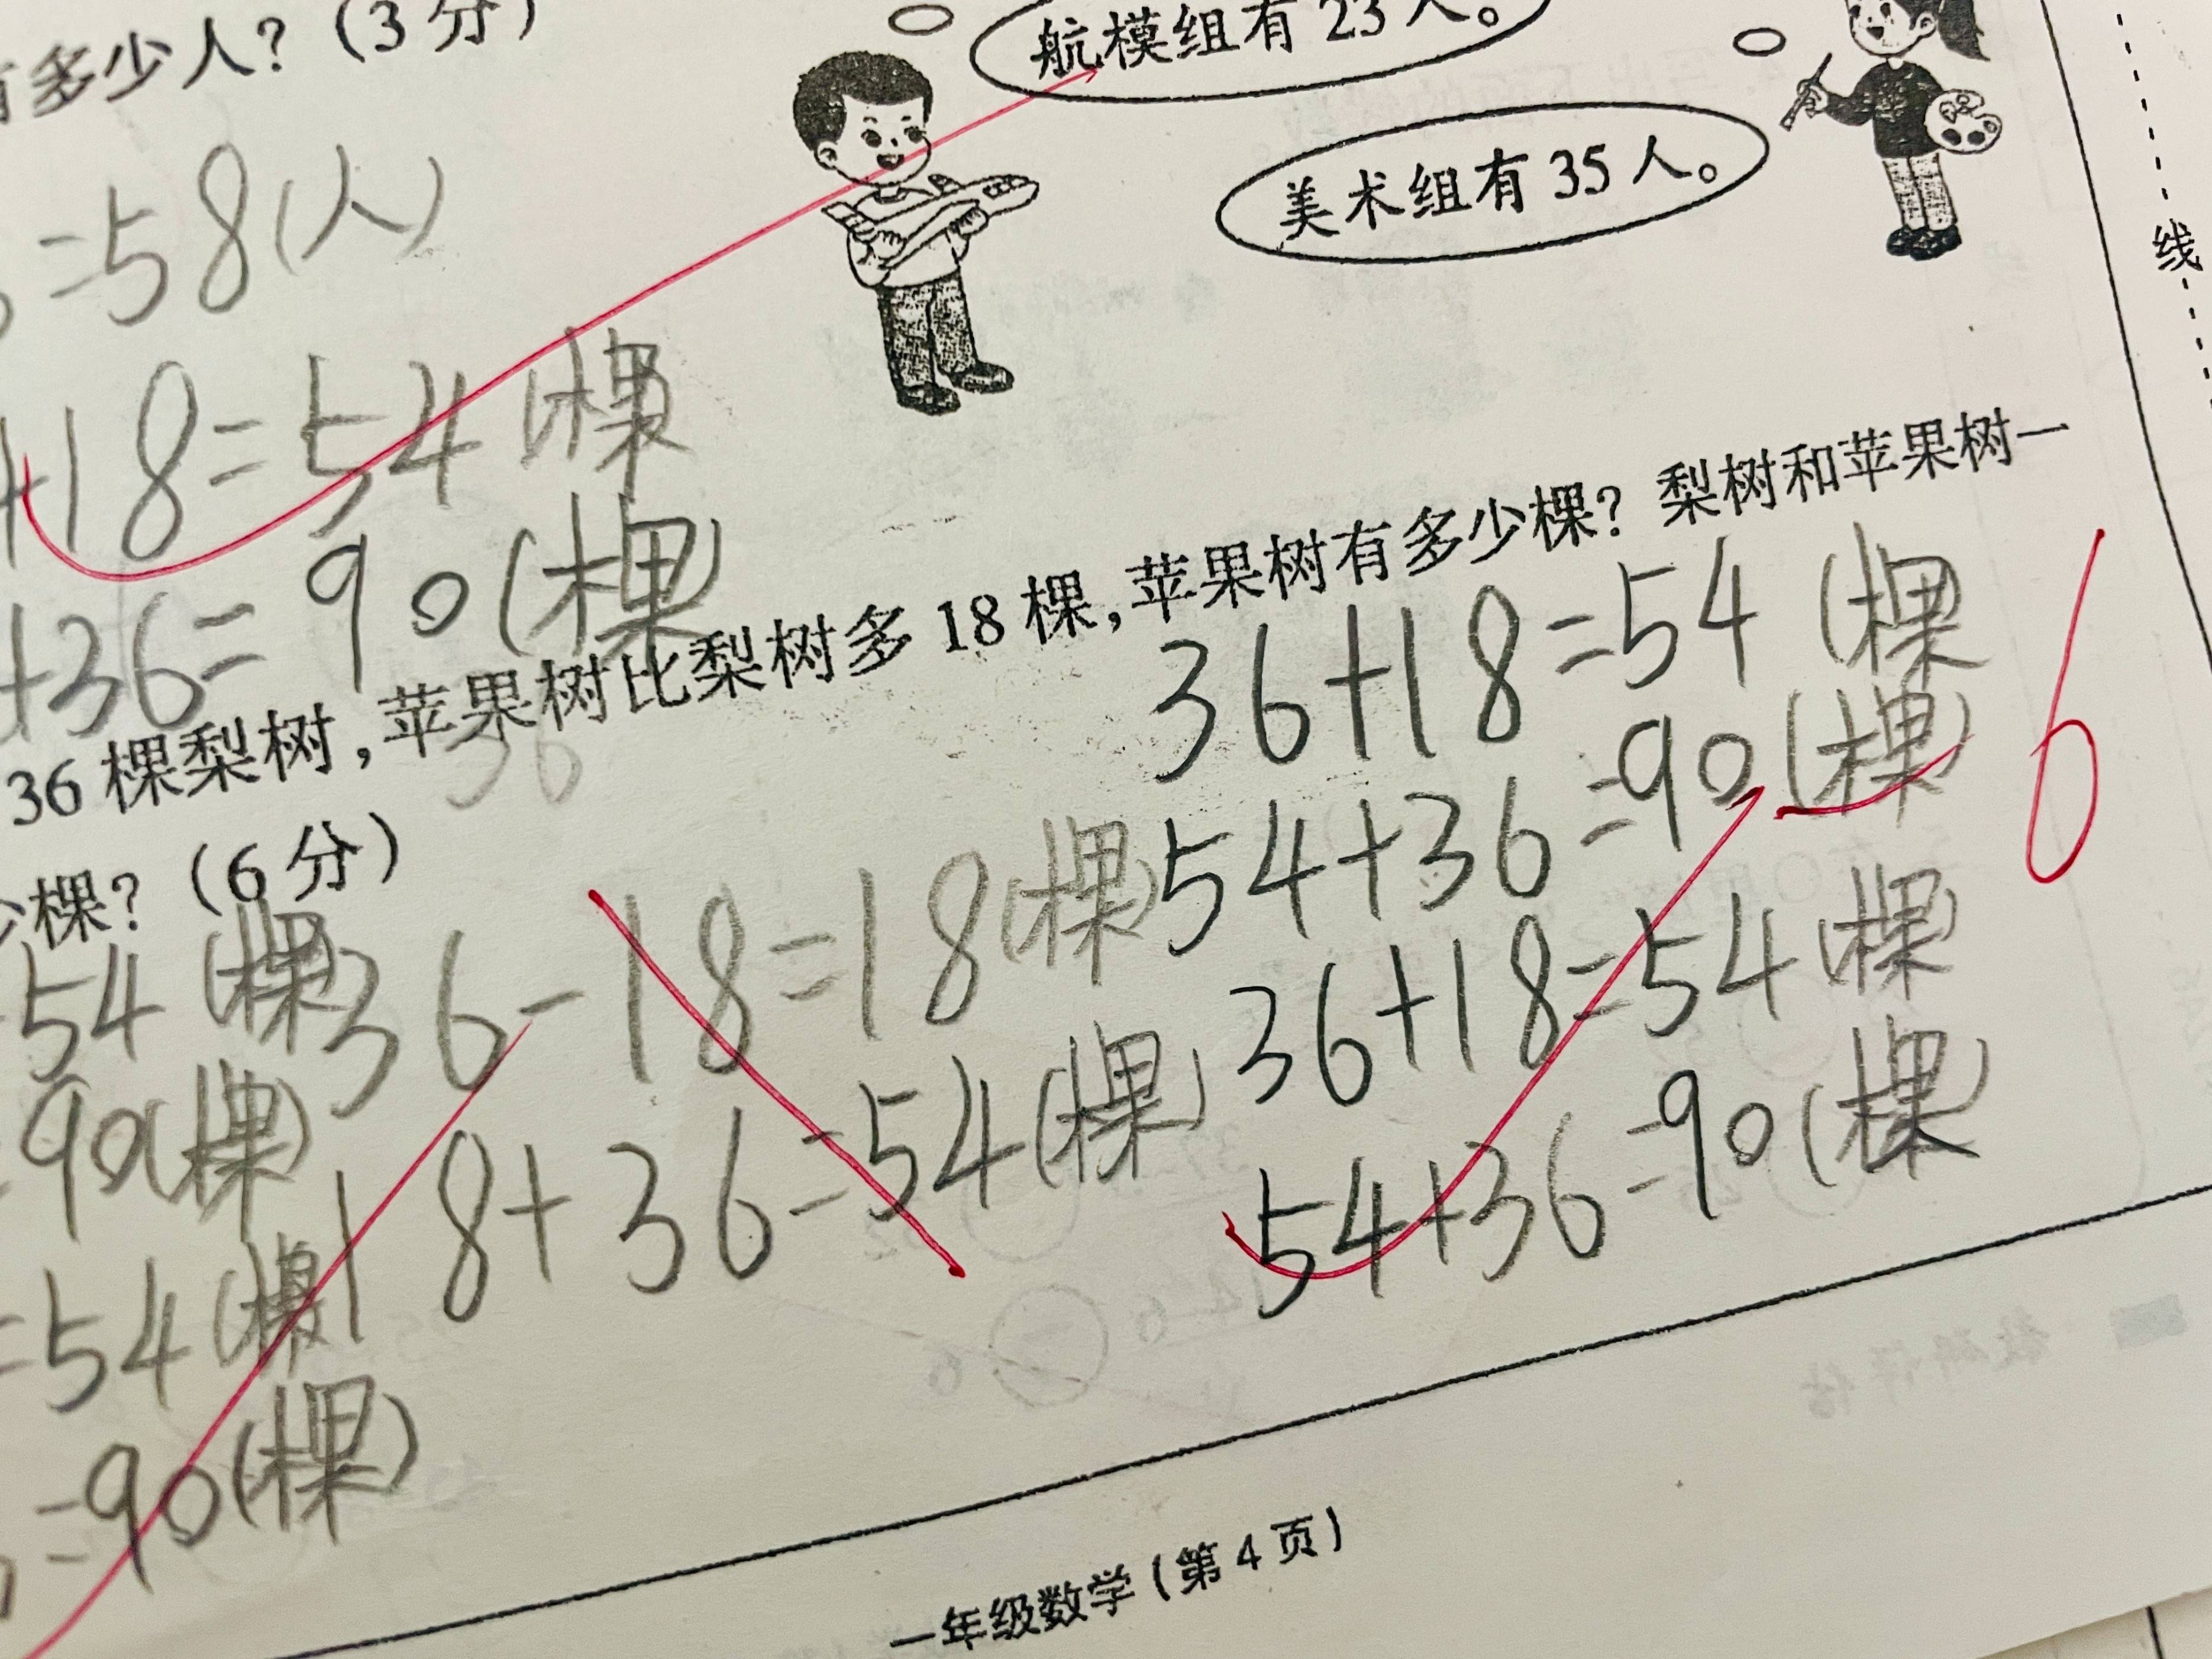 有多少人？（3分）
航模组有23人。
美术组有35人。
=58(人)
+18=54(棵
+36=90(棵)
36棵梨树，苹果树比梨树多18棵，苹果树有多少棵？梨树和苹果树一
36
少棵？（6分）
36+18=54(棵
54+36=90(棵)
36+18=54(棵
54+36=90(棵)
6
36-18=18(棵)
18+36=54(棵)
54(棵)
90(棵)
=54(棵)
=90(棵)
线
一年级数学（第4页）